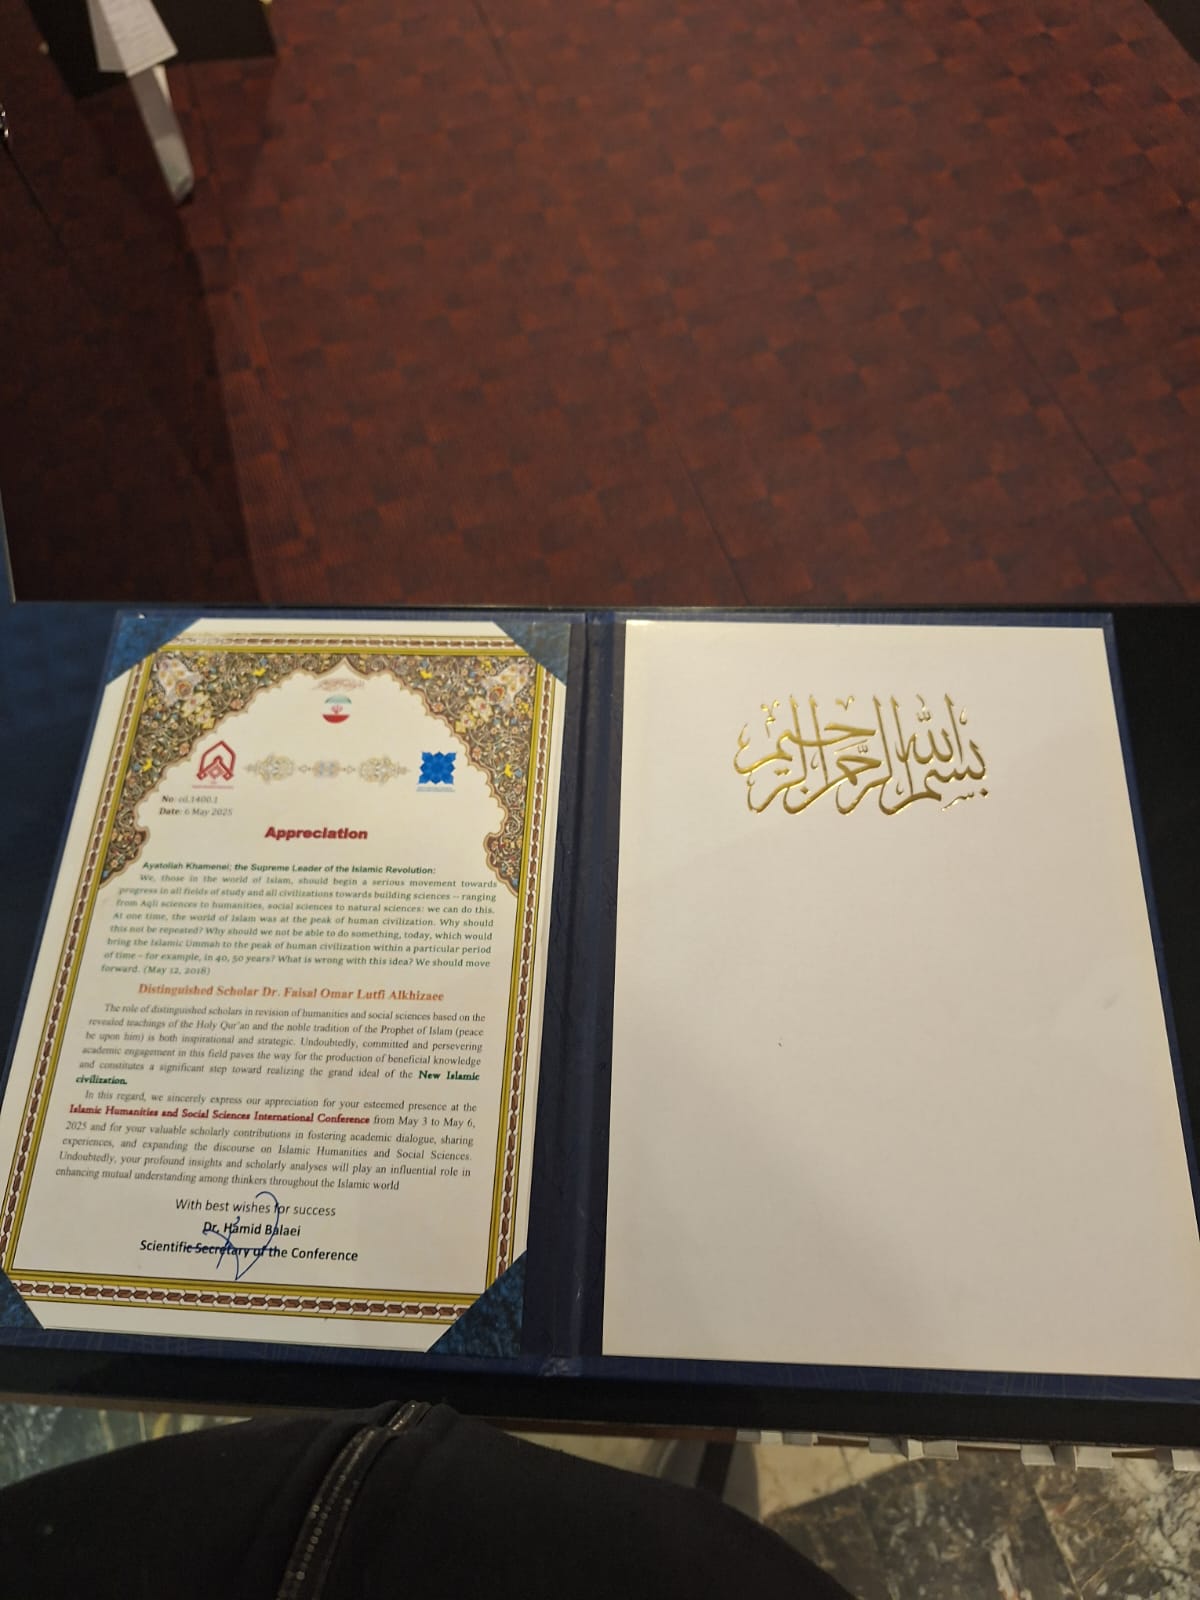 No: cd.1400.1
Date: 6 May 2025
Appreciation
Ayatollah Khamenei; the Supreme Leader of the Islamic Revolution:
We, those in the world of Islam, should begin a serious movement towards
progress in all fields of study and all civilizations towards building sciences – ranging
from Aqli sciences to humanities, social sciences to natural sciences: we can do this.
At one time, the world of Islam was at the peak of human civilization. Why should
this not be repeated? Why should we not be able to do something, today, which would
bring the Islamic Ummah to the peak of human civilization within a particular period
of time – for example, in 40, 50 years? What is wrong with this idea? We should move
forward. (May 12, 2018)
Distinguished Scholar Dr. Faisal Omar Lutfi Alkhizaee
The role of distinguished scholars in revision of humanities and social sciences based on the
revealed teachings of the Holy Qur'an and the noble tradition of the Prophet of Islam (peace
be upon him) is both inspirational and strategic. Undoubtedly, committed and persevering
academic engagement in this field paves the way for the production of beneficial knowledge
and constitutes a significant step toward realizing the grand ideal of the New Islamic
civilization.
In this regard, we sincerely express our appreciation for your esteemed presence at the
Islamic Humanities and Social Sciences International Conference from May 3 to May 6,
2025 and for your valuable scholarly contributions in fostering academic dialogue, sharing
experiences, and expanding the discourse on Islamic Humanities and Social Sciences.
Undoubtedly, your profound insights and scholarly analyses will play an influential role in
enhancing mutual understanding among thinkers throughout the Islamic world
With best wishes for success
Dr. Hamid Balaei
Scientific Secretary of the Conference
بسم الله الرحمن الرحيم